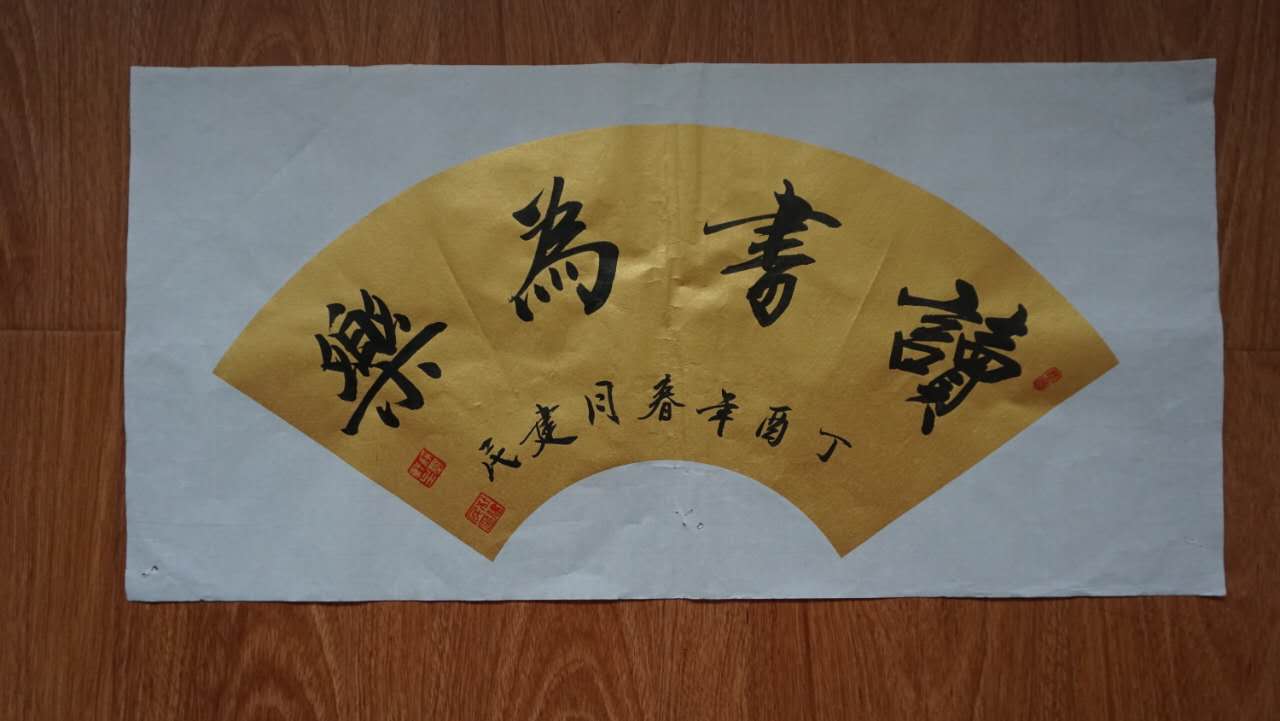 讀書為樂
丁酉年春月建民